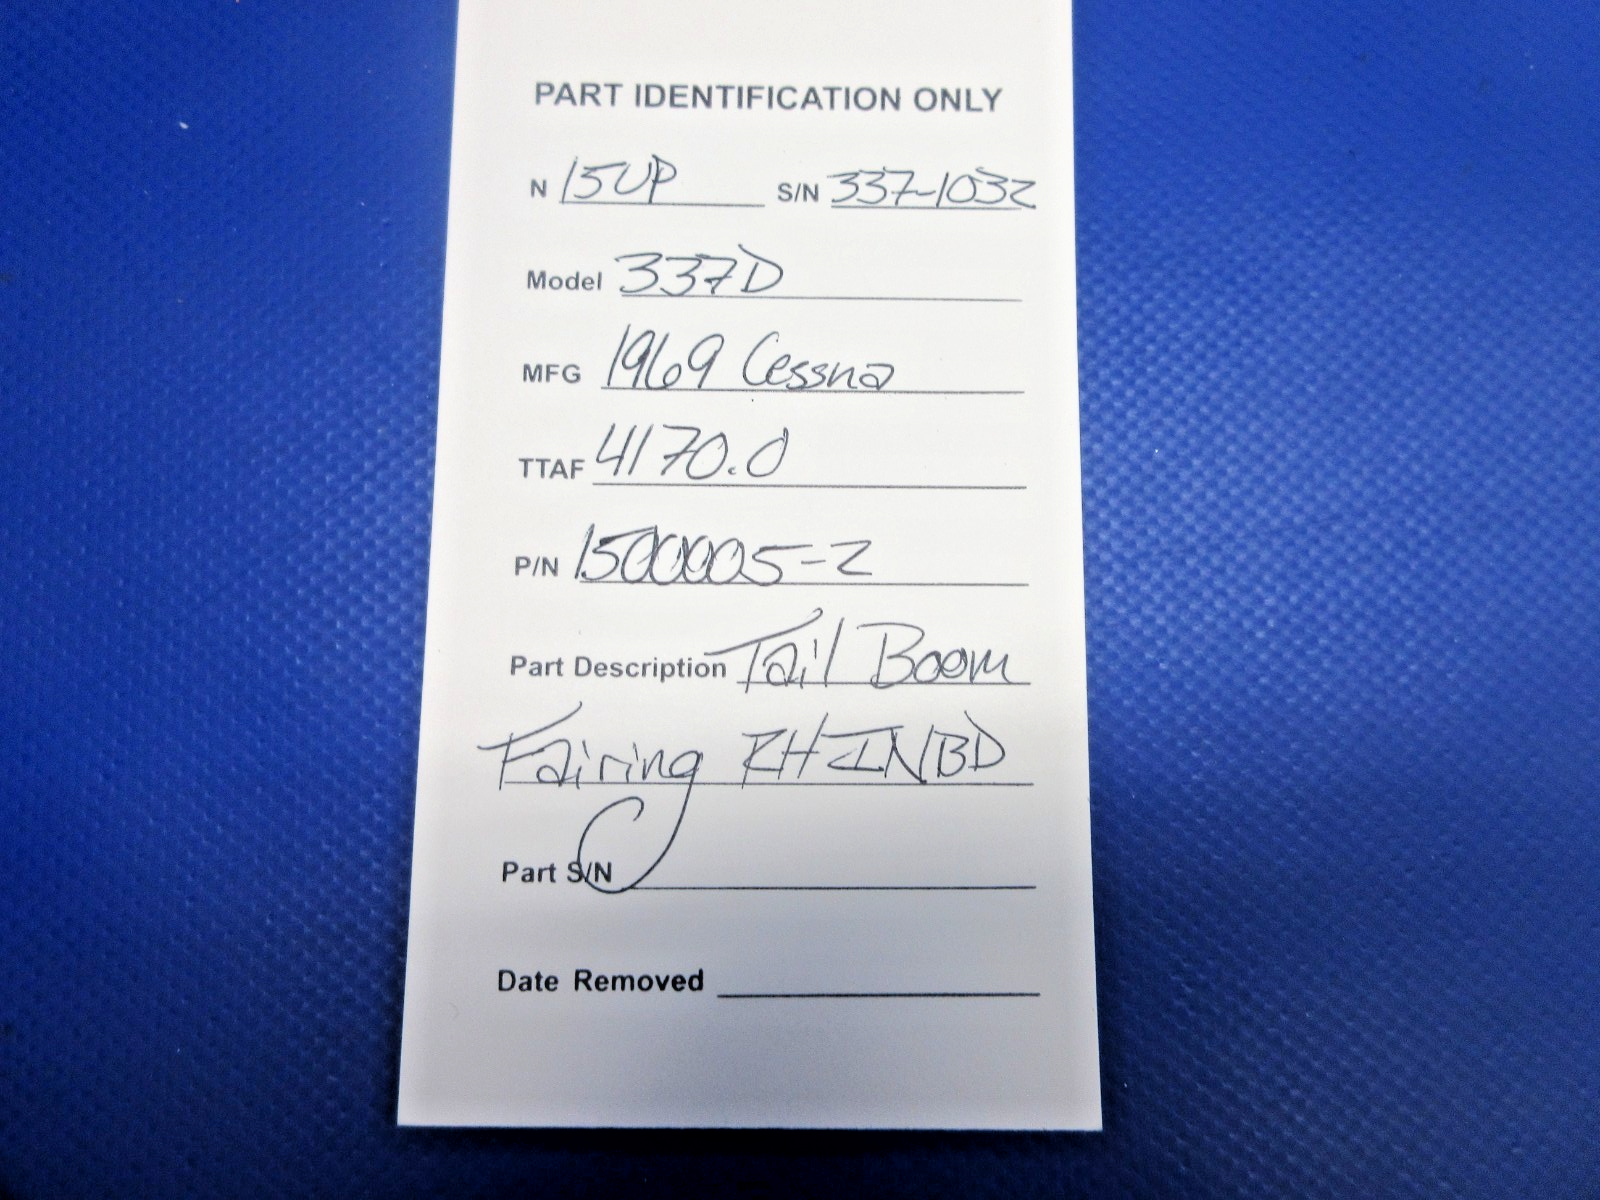 PART IDENTIFICATION ONLY
N 15UP S/N 337-1032
Model 337D
MFG 1969 Cessna
TTAF 4170.0
P/N 1500005-2
Part Description Tail Boom
Fairing RH INBD
Part S/N
Date Removed